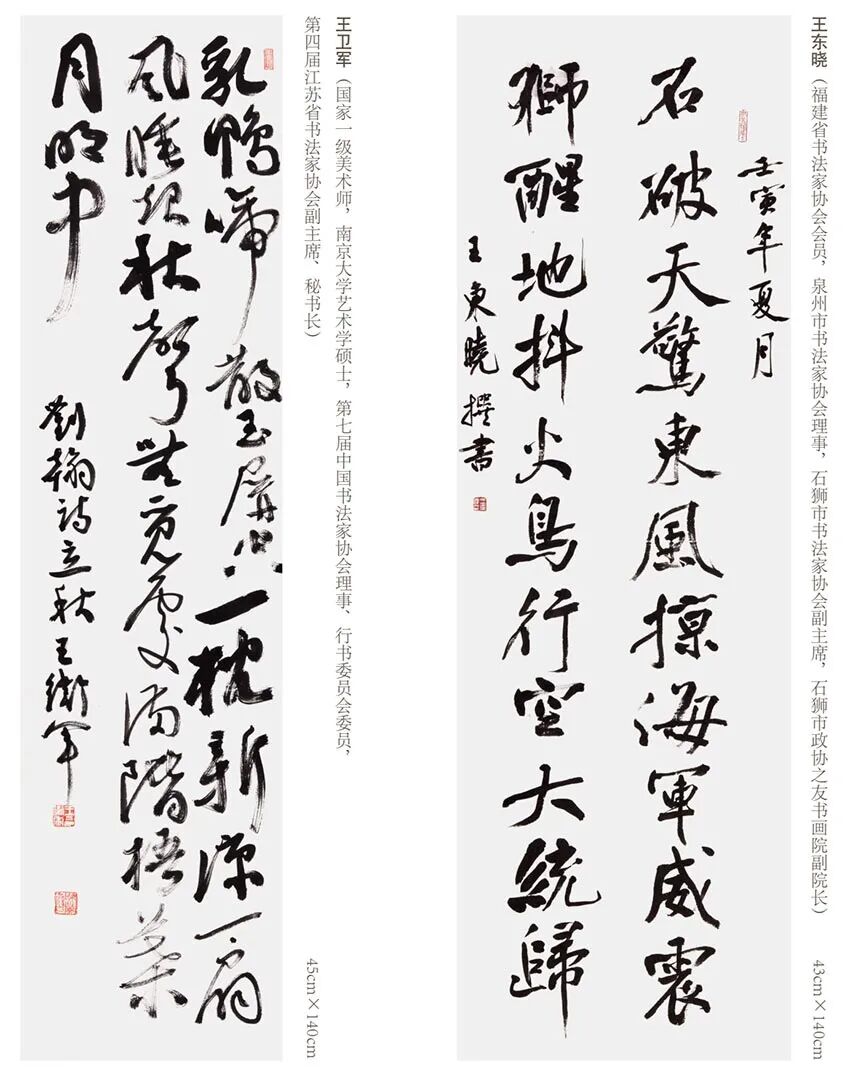 王东晓（福建省书法家协会会员，泉州市书法家协会理事，石狮市书法家协会副主席，石狮市政协之友书画院副院长）
43cm×140cm
壬寅年夏月
石破天驚東風掠海軍威震
獅醒地抖火鳥行空大統歸
王東曉撰書
王卫军（国家一级美术师，南京大学艺术学硕士，第七届中国书法家协会理事、行书委员会委员，
第四届江苏省书法家协会副主席、秘书长）
45cm×140cm
乳鴉啼散玉屏空一枕新涼一扇
風睡起秋聲無覓處滿階梧葉
月明中
劉翰詩立秋王衛軍